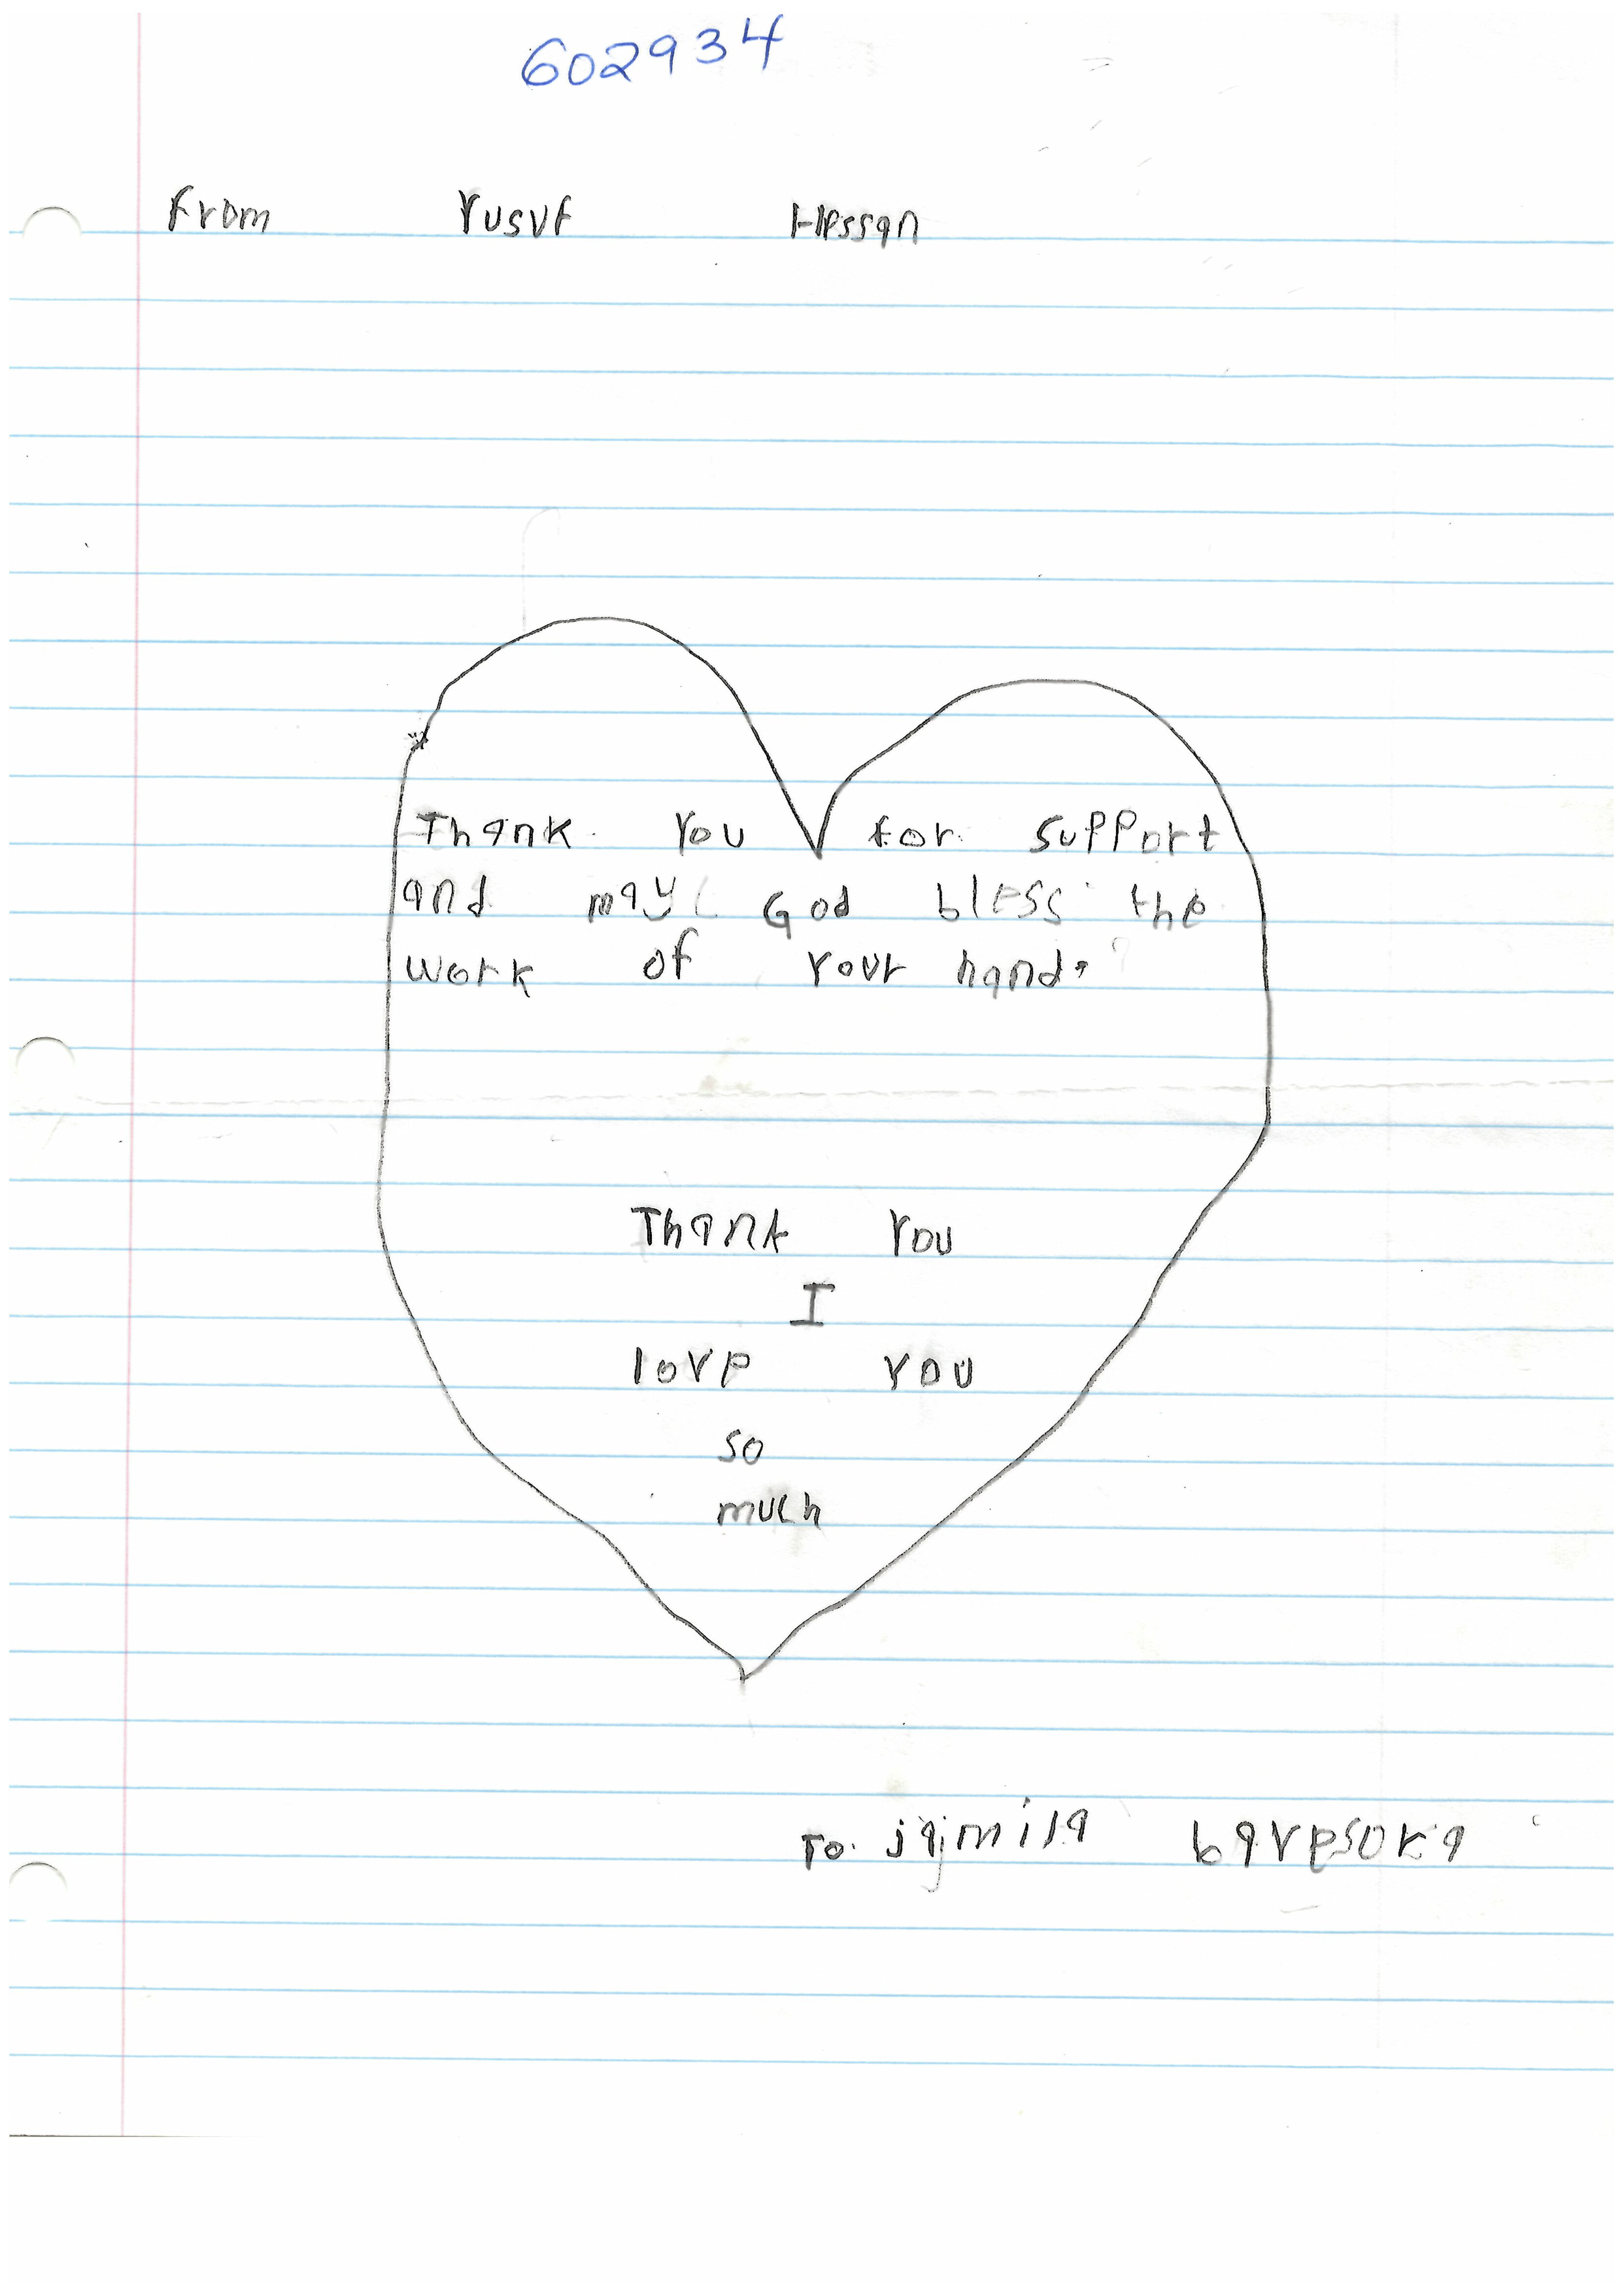 602934
From Yusuf Hessan
Thank you for support
and may God bless the
work of your hand.
Thank you
I
love you
so
much
To jajmila bavesoka